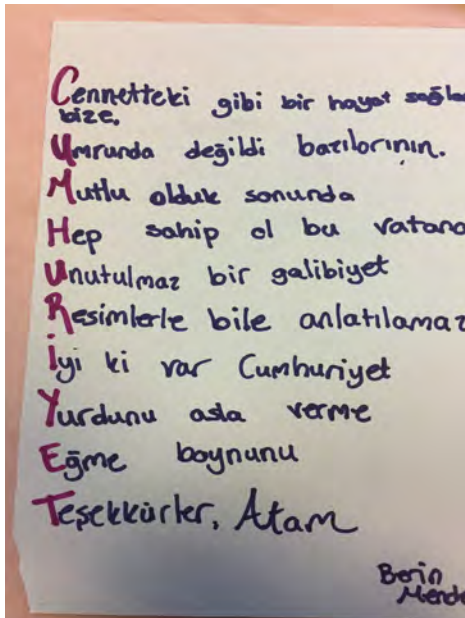 Cennetteki gibi bir hayat
bize,
Umrunda değildi bazılarının.
Mutlu olduk sonunda
Hep sahip ol bu
Unutulmaz bir galibiyet
Resimlerle bile anlatılamaz
İyi ki var Cumhuriyet
Yurdunu asla verme
Eğme boynunu
Teşekkürler, Atam
Berin